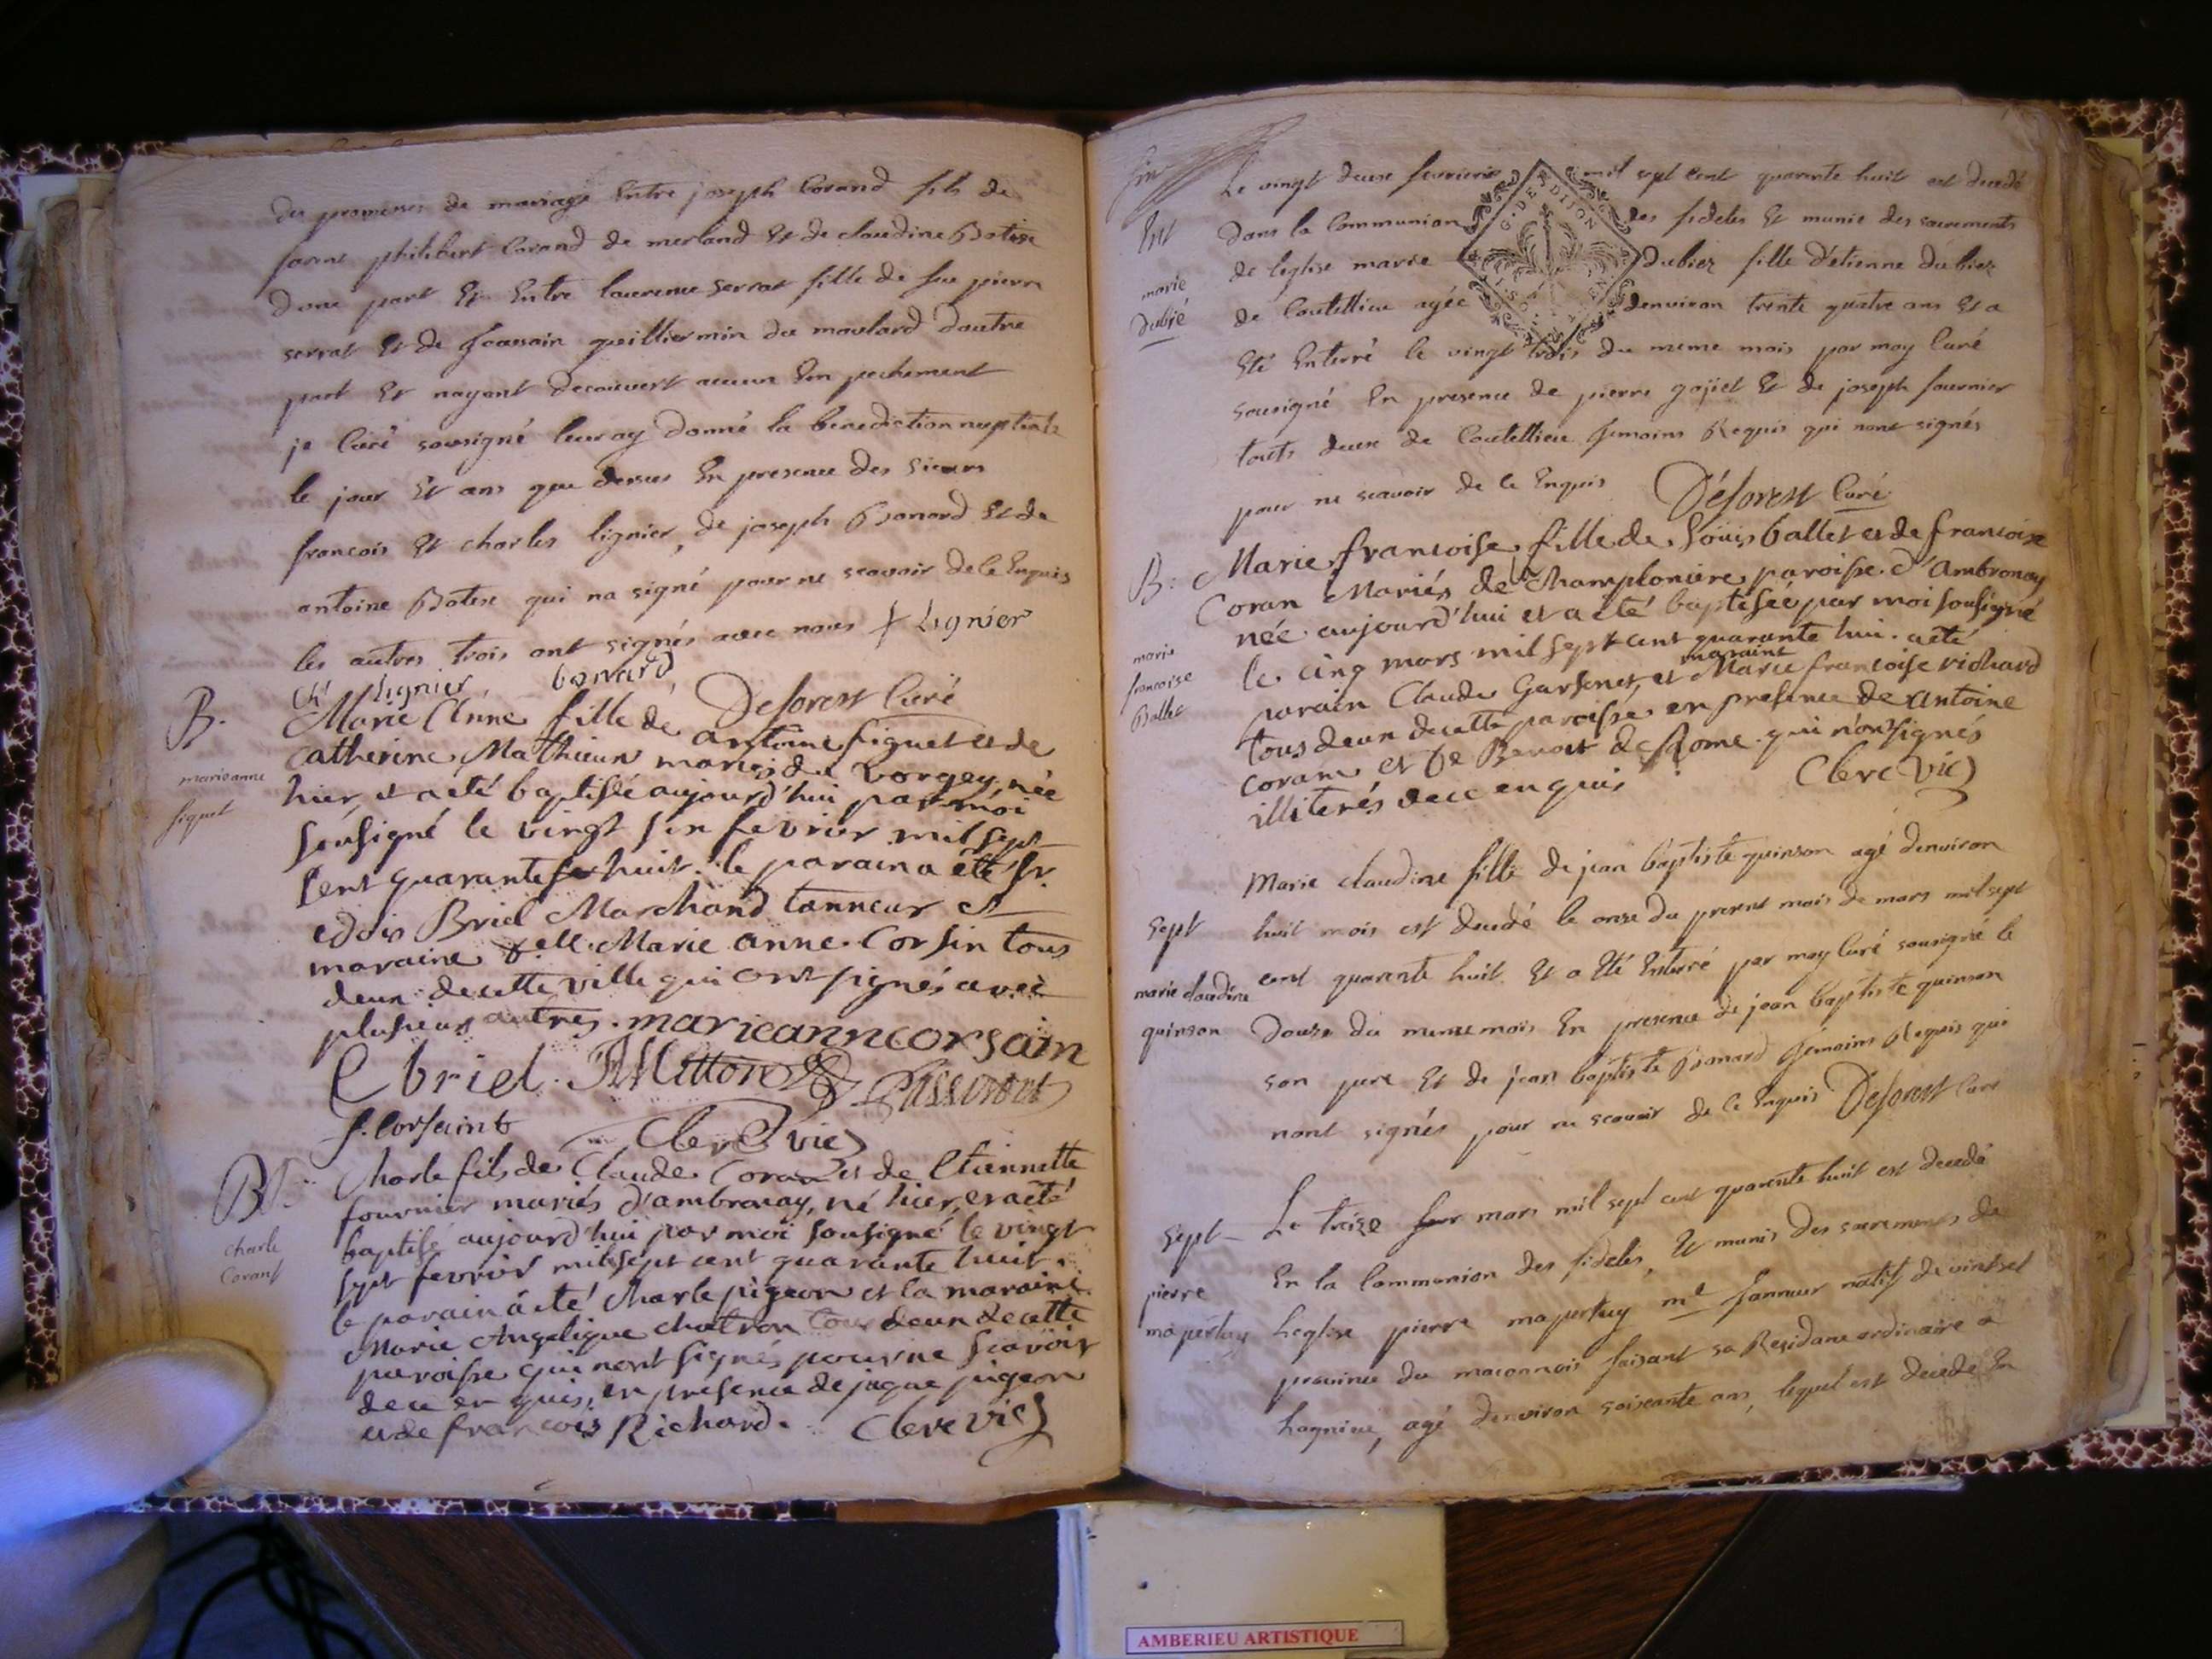 des promesses de mariage Entre joseph Corand fils de
philibert Corand de merland Et de claudine Botex
dune part Et Entre laurence serrat fille de feu pierre
serrat Et de guilliermin du moulard dautre
part Et nayant decouvert aucun Em pechement
je Curé sousigné leur ay donné la benediction nuptiale
le jour Et ans que dessus En presence des sieurs
francois Et charles lignier, de joseph Bonard Et de
antoine Botex qui na signé pour ne scavoir de ce Enquis
les autres trois ont signés avec nous Lignier
Ch Lignier bonard Deforest Curé
B. Marie Anne fille de antoine figuet et de
marieanne figuet
Catherine Mathieu mariés de Vorgey, née
hier, et a eté baptisée aujourd'hui par moi
sousigné le vingt six fevrier mil sept
Cent quarante huit. le parain a été Sr.
Briel Marchand tanneur et
maraine Marie anne Corsin tous
deux de cette ville qui ont signés avec
plusieurs autres. marieannecorsain
C briel. Mitton
f. Corsaint
Clerc vic
B. Charle fils de Claude Coran et de Etiennette
charle Corant
fournier mariés d'ambronay, né hier, et a eté
baptisé aujourd'hui par moi sousigné le vingt
sept fevrier mil sept cent quarante huit.
le parain à eté Charle pigeon et la maraine
Marie Angelique chatron tous deux de cette
paroisse qui n'ont signés pour ne scavoir
de ce en quis, en presence de jaque pigeon
et de francois Richard. Clerc vic
Le vingt deux fevrier mil sept Cent quarante huit est decedé
G. DE DIJON
dans la Communion des fideles Et munie des sacrements
de leglise marie dubiez fille d'etienne dubiez
marie
dubié
de Coutellieu agée denviron trente quatre ans Et a
Eté Enterré le vingt trois du meme mois par moy Curé
sousigné En presence de pierre gojiet Et de joseph fournier
touts deux de Coutellieu temoins Requis qui nont signés
pour ne scavoir de ce Enquis Déforest Curé
B. Marie francoise fille de Loüis ballet et de francoise
Coran Mariés de Champloniere, paroisse d'Ambronay
née aujourd'hui et a eté baptisée par moi sousigné
marie
francoise
Ballet
le cinq mars mil sept cent quarante hui. a eté
parain Claude Garsenet, et maraine Marie francoise richard
tous deux de cette paroisse en presence de antoine
coran et de Benoit de Rome qui n'ont signés
illiterés de ce enquis Clerc Vic
Marie claudine fille de jean baptiste quinson agé denviron
Sept
huit mois est decedé le onze du present mois de mars mil sept
marie claudine
quinson
cent quarante huit Et a Eté Enterré par moy Curé sousigné le
douze du meme mois En presence de jean baptiste quinson
son pere Et de jean baptiste Bonard temoins Requis qui
nont signés pour ne scavoir de ce Enquis Deforest Curé
Sept
Le treize mars mil sept cent quarante huit est decedé
En la Communion des fideles, Et munis des sacremens de
pierre
mapertuy
leglise pierre mapertuy md tanneur natif de
province du maconnois faisant sa Residance ordinaire a
lagnieu, agé denviron soixante ans, lequel est decedé En
AMBERIEU ARTISTIQUE